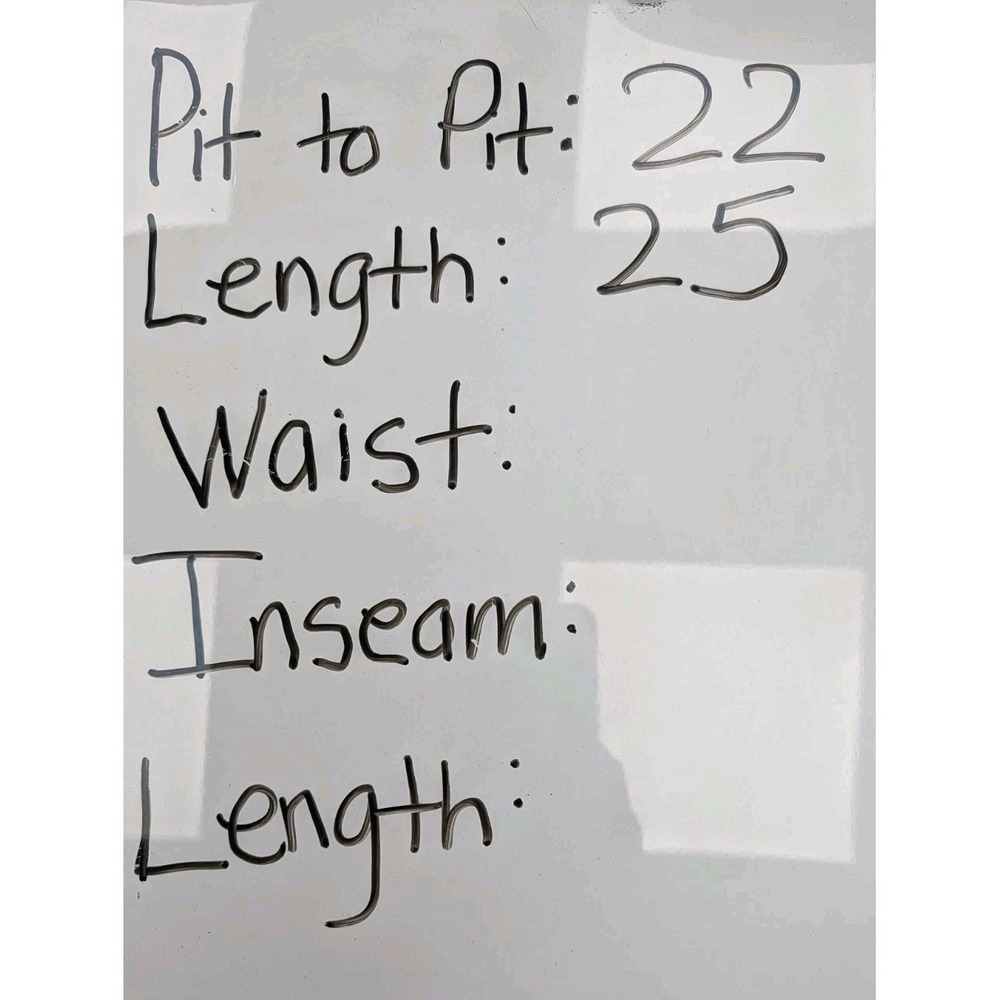 Pit to Pit: 22
Length: 25
Waist:
Inseam:
Length: